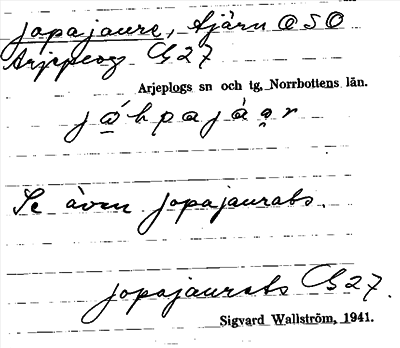 jopajaure, tjärn OSO
Arjeplog G27
Arjeplogs sn och tg, Norrbottens län.
jå̱hpajàạr
Se även jopajaurats.
jopajaurats G27.
Sigvard Wallström, 1941.